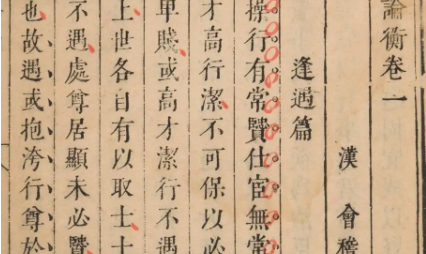 論衡卷一
漢 會稽
逢遇篇
操行有常賢仕宦無常
才高行潔不可保以必
卑賤或高才潔行不遇
上世各自有以取士士
不遇處尊居顯未必賢
也故遇或抱洿行尊於